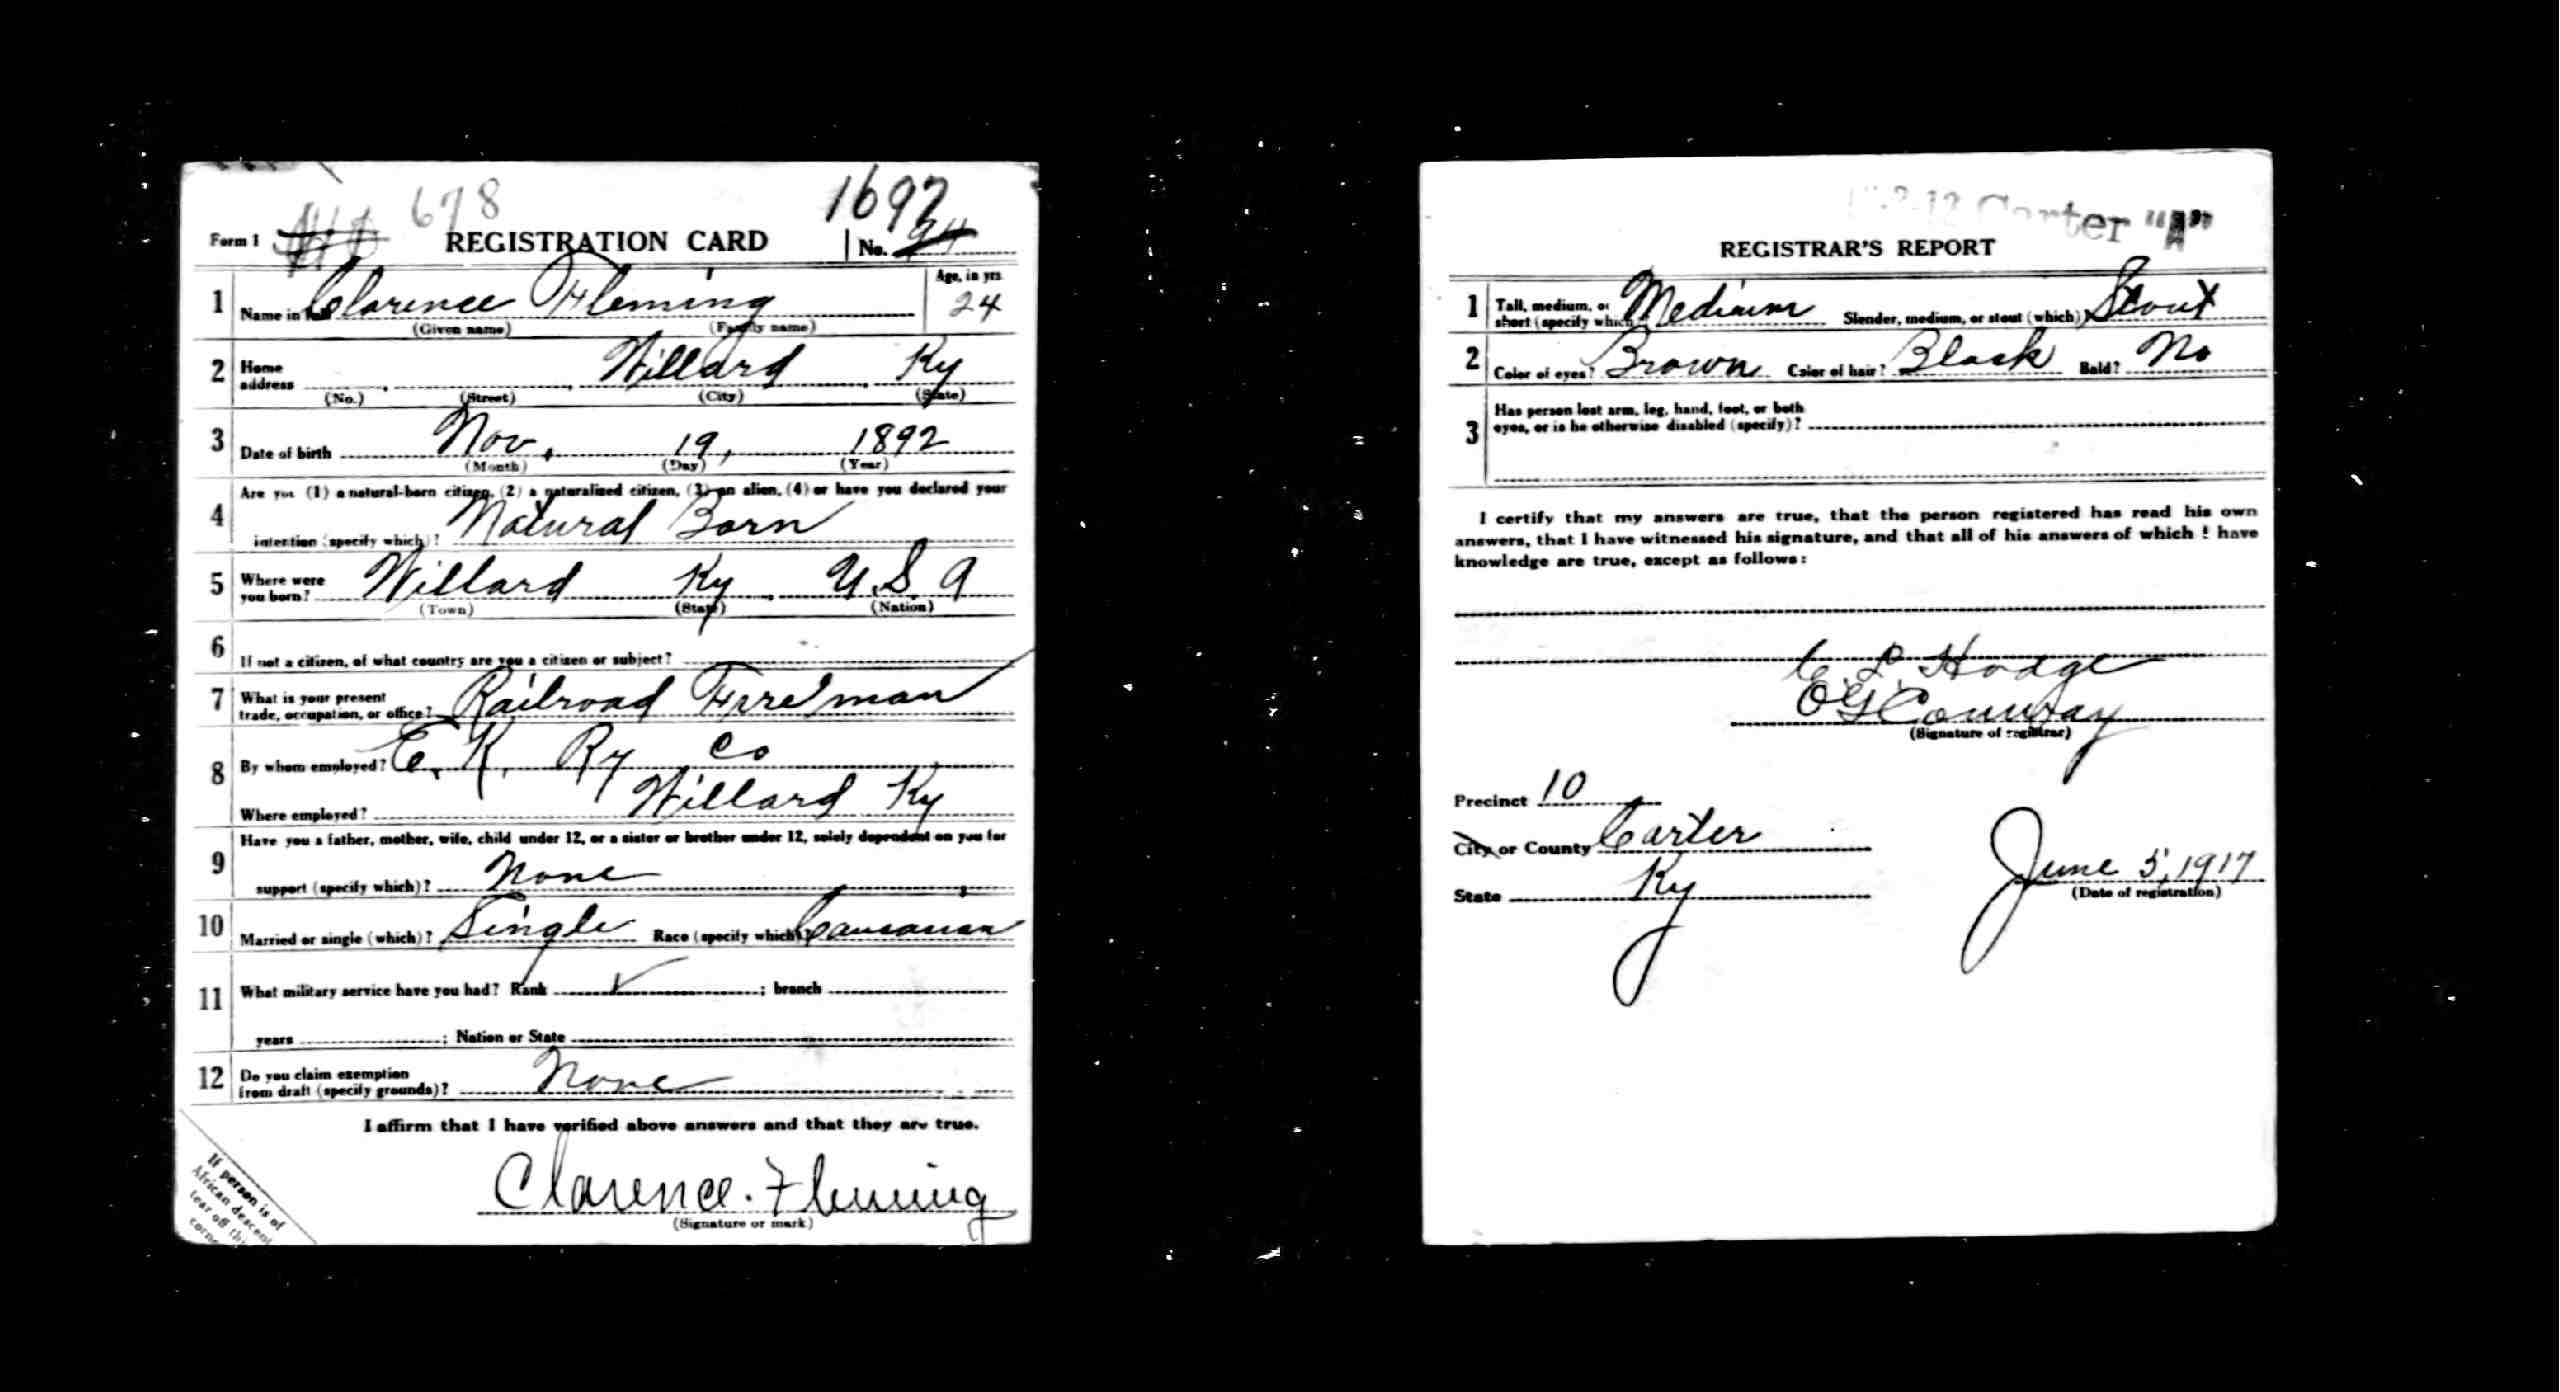 678
1697
Form 1 REGISTRATION CARD No. 94
1 Name in full Clarence Fleming Age, in yrs 24
(Given name) (Family name)
2 Home address Willard Ky
(No.) (Street) (City) (State)
3 Date of birth Nov. 19, 1892
(Month) (Day) (Year)
4 Are you (1) a natural-born citizen, (2) a naturalized citizen, (3) an alien, (4) or have you declared your
intention (specify which)? Natural Born
5 Where were you born? Willard Ky U.S.A
(Town) (State) (Nation)
6 If not a citizen, of what country are you a citizen or subject?
7 What is your present trade, occupation, or office? Railroad Fireman
8 By whom employed? E. K. Ry Co
Where employed? Willard Ky
9 Have you a father, mother, wife, child under 12, or a sister or brother under 12, solely dependent on you for
support (specify which)? None
10 Married or single (which)? Single Race (specify which)? Caucasian
11 What military service have you had? Rank ; branch
years ; Nation or State
12 Do you claim exemption from draft (specify grounds)? None
I affirm that I have verified above answers and that they are true.
Clarence. Fleming
(Signature or mark)
If person is of
African descent
tear off this
corner
Carter "A"
REGISTRAR'S REPORT
1 Tall, medium, or short (specify which) Medium Slender, medium, or stout (which)? Stout
2 Color of eyes? Brown Color of hair? Black Bald? No
3 Has person lost arm, leg, hand, foot, or both
eyes, or is he otherwise disabled (specify)?
I certify that my answers are true, that the person registered has read his own
answers, that I have witnessed his signature, and that all of his answers of which I have
knowledge are true, except as follows:
C. L. Hodge
O G Conway
(Signature of registrar)
Precinct 10
City or County Carter
State Ky
June 5, 1917
(Date of registration)